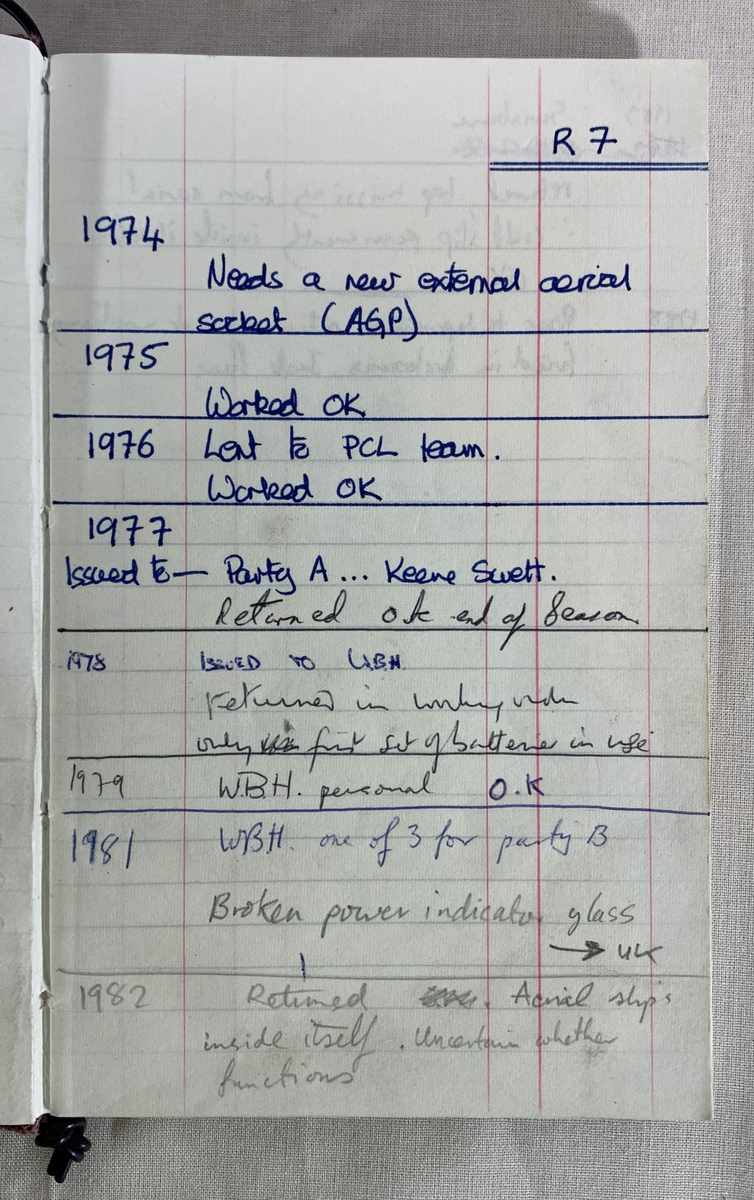 R 7
1974
Needs a new external aerial
socket (AGP)
1975
Worked OK
1976 Lent to PCL team.
Worked OK
1977
Issued to — Party A ... Keene Swett.
Returned ok end of Season.
1978 ISSUED TO WBH
returned in working order
only first set of batteries in use
1979 W.B.H. personal O.K
1981 WBH. one of 3 for party B
Broken power indicator glass
→ UK
1982 Returned . Aerial slips
inside itself . Uncertain whether
functions